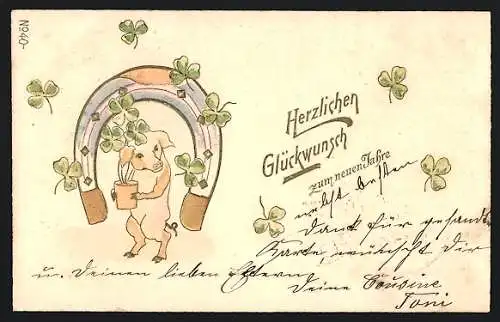 No 40-
Herzlichen
Glückwunsch
zum neuen Jahre
nebst besten
Dank für gesandte
Karte, wünscht Dir
u. Deinen lieben Eltern
Deine Cousine
Toni